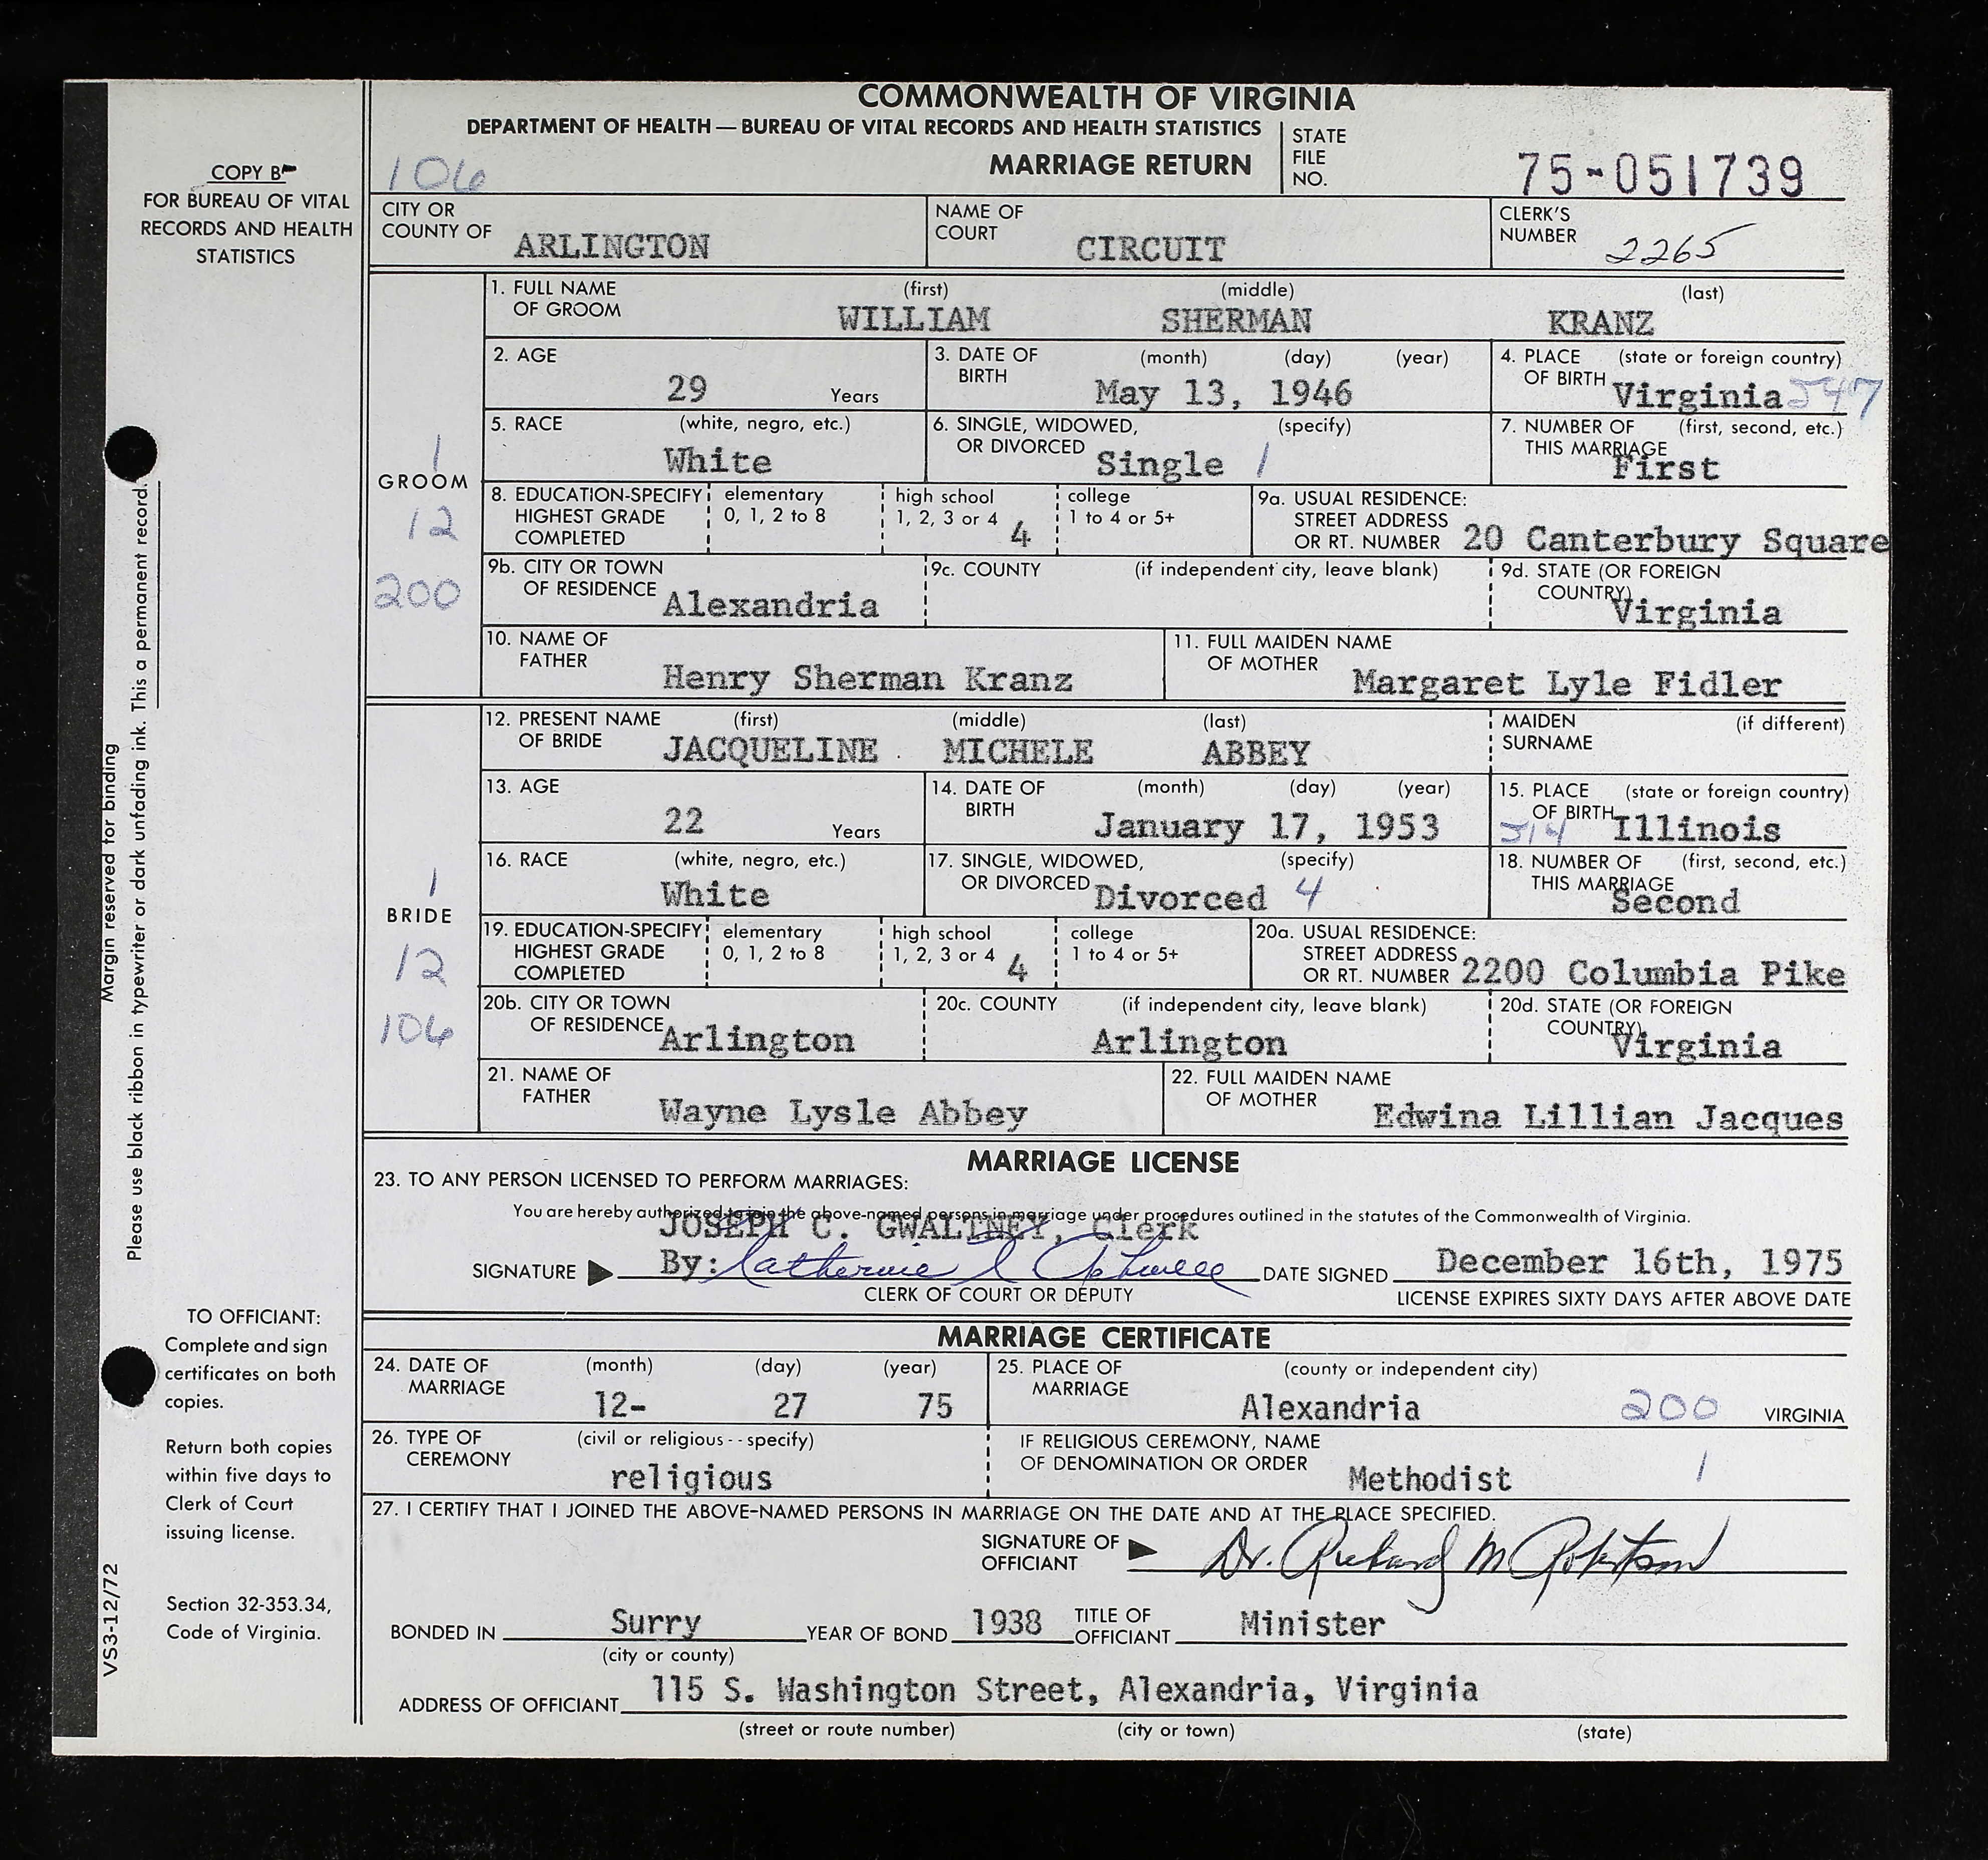 COMMONWEALTH OF VIRGINIA
DEPARTMENT OF HEALTH — BUREAU OF VITAL RECORDS AND HEALTH STATISTICS
MARRIAGE RETURN
STATE FILE NO. 75-051739
106
COPY B
FOR BUREAU OF VITAL
RECORDS AND HEALTH
STATISTICS
CITY OR COUNTY OF ARLINGTON
NAME OF COURT CIRCUIT
CLERK'S NUMBER 2265
GROOM
1
12
200
1. FULL NAME OF GROOM (first) WILLIAM (middle) SHERMAN (last) KRANZ
2. AGE 29 Years
3. DATE OF BIRTH (month) (day) (year) May 13, 1946
4. PLACE OF BIRTH (state or foreign country) Virginia 547
5. RACE (white, negro, etc.) White
6. SINGLE, WIDOWED, OR DIVORCED (specify) Single 1
7. NUMBER OF THIS MARRIAGE (first, second, etc.) First
8. EDUCATION-SPECIFY HIGHEST GRADE COMPLETED elementary 0, 1, 2 to 8 high school 1, 2, 3 or 4 4 college 1 to 4 or 5+
9a. USUAL RESIDENCE: STREET ADDRESS OR RT. NUMBER 20 Canterbury Square
9b. CITY OR TOWN OF RESIDENCE Alexandria
9c. COUNTY (if independent city, leave blank)
9d. STATE (OR FOREIGN COUNTRY) Virginia
10. NAME OF FATHER Henry Sherman Kranz
11. FULL MAIDEN NAME OF MOTHER Margaret Lyle Fidler
BRIDE
1
12
106
12. PRESENT NAME OF BRIDE (first) JACQUELINE (middle) MICHELE (last) ABBEY
MAIDEN SURNAME (if different)
13. AGE 22 Years
14. DATE OF BIRTH (month) (day) (year) January 17, 1953
15. PLACE OF BIRTH (state or foreign country) 514 Illinois
16. RACE (white, negro, etc.) White
17. SINGLE, WIDOWED, OR DIVORCED (specify) Divorced 4
18. NUMBER OF THIS MARRIAGE (first, second, etc.) Second
19. EDUCATION-SPECIFY HIGHEST GRADE COMPLETED elementary 0, 1, 2 to 8 high school 1, 2, 3 or 4 4 college 1 to 4 or 5+
20a. USUAL RESIDENCE: STREET ADDRESS OR RT. NUMBER 2200 Columbia Pike
20b. CITY OR TOWN OF RESIDENCE Arlington
20c. COUNTY (if independent city, leave blank) Arlington
20d. STATE (OR FOREIGN COUNTRY) Virginia
21. NAME OF FATHER Wayne Lysle Abbey
22. FULL MAIDEN NAME OF MOTHER Edwina Lillian Jacques
MARRIAGE LICENSE
23. TO ANY PERSON LICENSED TO PERFORM MARRIAGES:
You are hereby authorized to join the above-named persons in marriage under procedures outlined in the statutes of the Commonwealth of Virginia.
JOSEPH C. GWALTNEY, Clerk
SIGNATURE By: Catherine
DATE SIGNED December 16th, 1975
CLERK OF COURT OR DEPUTY
LICENSE EXPIRES SIXTY DAYS AFTER ABOVE DATE
MARRIAGE CERTIFICATE
24. DATE OF MARRIAGE (month) (day) (year) 12- 27 75
25. PLACE OF MARRIAGE (county or independent city) Alexandria 200 VIRGINIA
26. TYPE OF CEREMONY (civil or religious--specify) religious
IF RELIGIOUS CEREMONY, NAME OF DENOMINATION OR ORDER Methodist 1
27. I CERTIFY THAT I JOINED THE ABOVE-NAMED PERSONS IN MARRIAGE ON THE DATE AND AT THE PLACE SPECIFIED.
SIGNATURE OF OFFICIANT Dr. Richard M Robertson
BONDED IN Surry (city or county) YEAR OF BOND 1938 TITLE OF OFFICIANT Minister
ADDRESS OF OFFICIANT 115 S. Washington Street, Alexandria, Virginia
(street or route number) (city or town) (state)
Margin reserved for binding
Please use black ribbon in typewriter or dark unfading ink. This a permanent record.
TO OFFICIANT:
Complete and sign
certificates on both
copies.
Return both copies
within five days to
Clerk of Court
issuing license.
Section 32-353.34,
Code of Virginia.
VS3-12/72